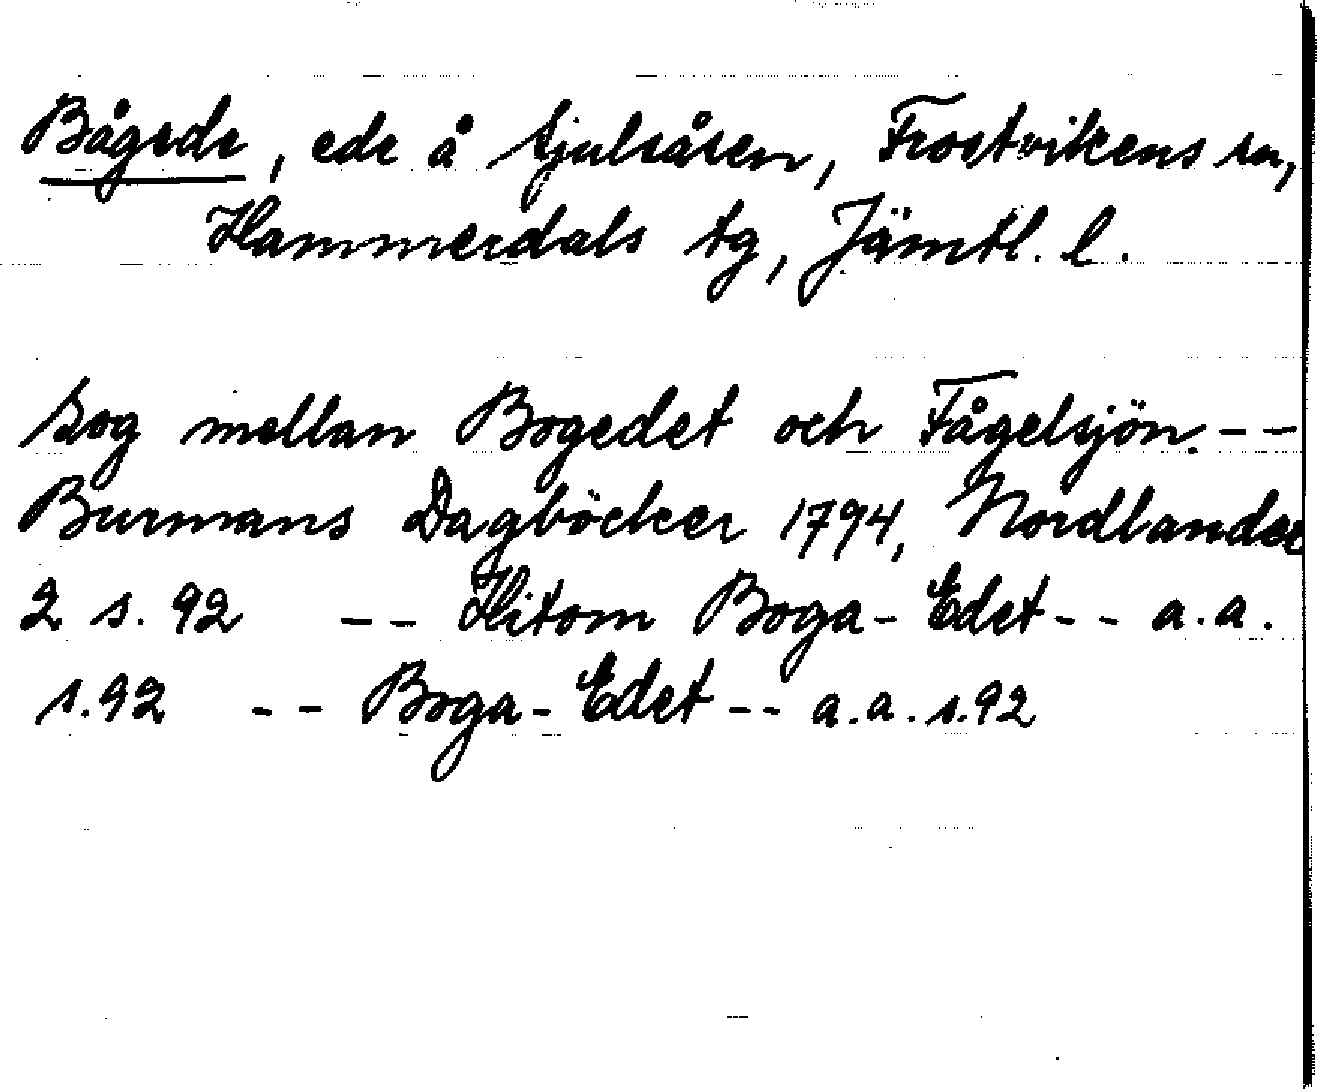 Bågede, ede å Sjulsåsen, Frostvikens sn,
Hammerdals tg, Jämtl. l.
Tog mellan Bogedet och Fågelsjön. --
Burmans Dagböcker 1794, Nordlander
2 s. 92 -- Hitom Boga-Edet -- a.a.
s.92 -- Boga-Edet -- a.a. s.92